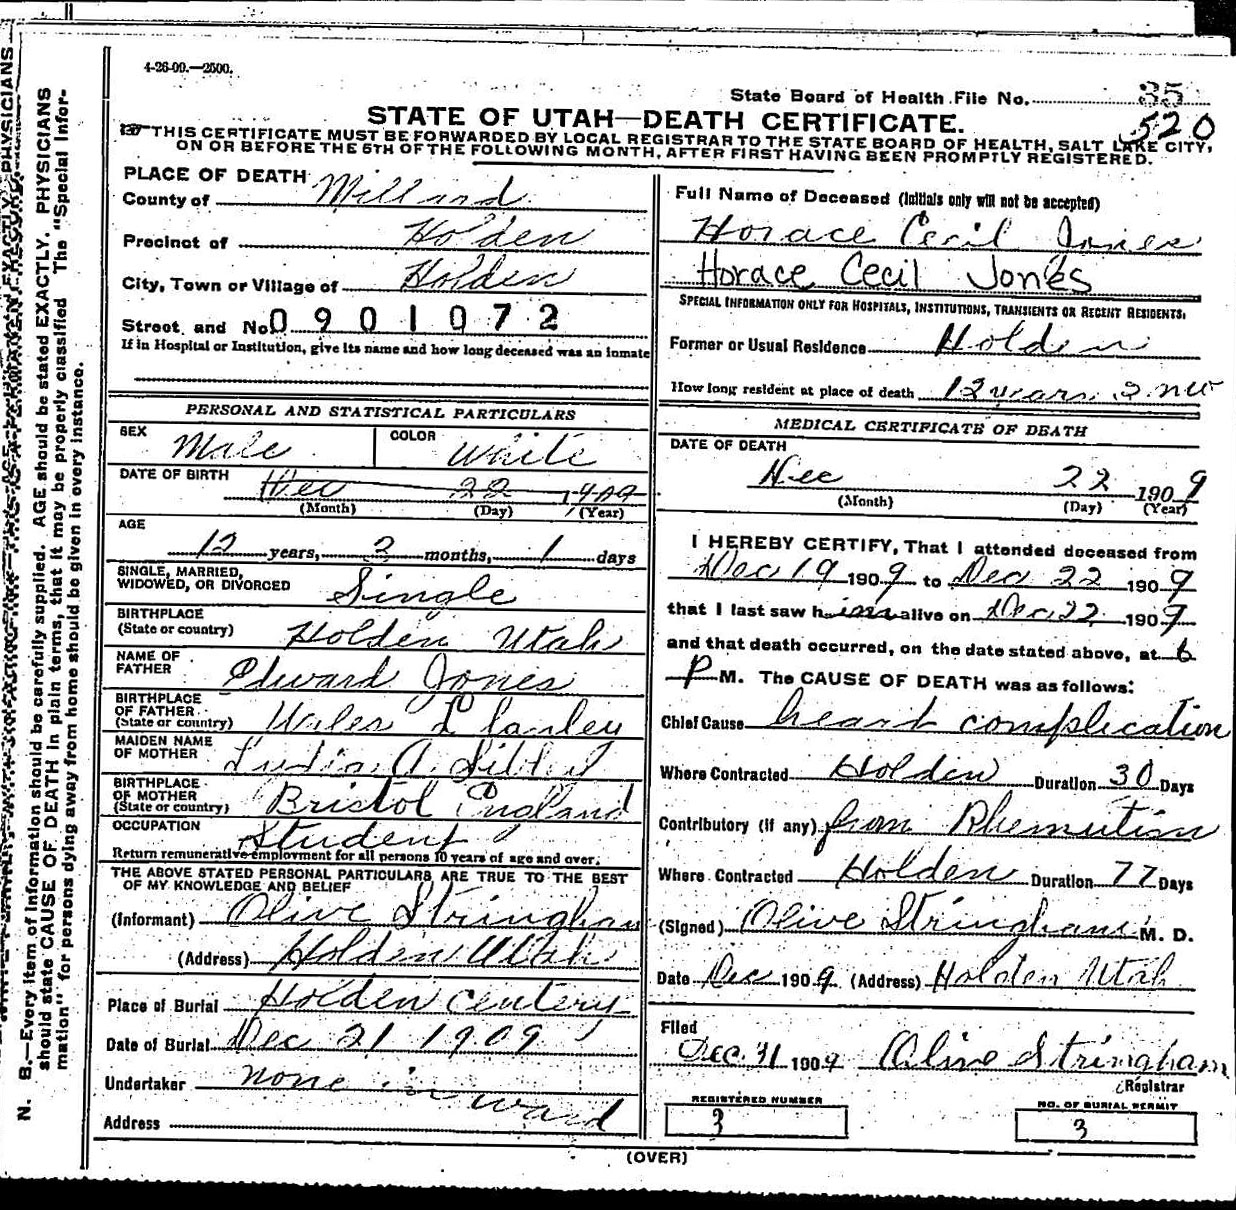 4-26-09.—2500.
State Board of Health File No. 35
520
STATE OF UTAH—DEATH CERTIFICATE.
THIS CERTIFICATE MUST BE FORWARDED BY LOCAL REGISTRAR TO THE STATE BOARD OF HEALTH, SALT LAKE CITY,
ON OR BEFORE THE 5TH OF THE FOLLOWING MONTH, AFTER FIRST HAVING BEEN PROMPTLY REGISTERED.
PLACE OF DEATH
County of Millard
Precinct of Holden
City, Town or Village of Holden
Street and No. 0901072
If in Hospital or Institution, give its name and how long deceased was an inmate
PERSONAL AND STATISTICAL PARTICULARS
SEX Male COLOR White
DATE OF BIRTH Dec 22 1909
(Month) (Day) (Year)
AGE
12 years, 2 months, 1 days
SINGLE, MARRIED,
WIDOWED, OR DIVORCED Single
BIRTHPLACE
(State or country) Holden Utah
NAME OF
FATHER Edward Jones
BIRTHPLACE
OF FATHER
(State or country) Wales
MAIDEN NAME
OF MOTHER
BIRTHPLACE
OF MOTHER
(State or country) Bristol England
OCCUPATION Student
Return remunerative employment for all persons 10 years of age and over.
THE ABOVE STATED PERSONAL PARTICULARS ARE TRUE TO THE BEST
OF MY KNOWLEDGE AND BELIEF
(Informant) Olive Stringham
(Address) Holden Utah
Place of Burial Holden Centery
Date of Burial Dec 21 1909
Undertaker none in
ward
Address
Full Name of Deceased (Initials only will not be accepted)
Horace Cecil Jones
Horace Cecil Jones
SPECIAL INFORMATION ONLY FOR HOSPITALS, INSTITUTIONS, TRANSIENTS OR RECENT RESIDENTS.
Former or Usual Residence Holden
How long resident at place of death 12 years 2
MEDICAL CERTIFICATE OF DEATH
DATE OF DEATH
Dec 22 1909
(Month) (Day) (Year)
I HEREBY CERTIFY, That I attended deceased from
Dec 19 1909 to Dec 22 1909
that I last saw him alive on Dec 22 1909
and that death occurred, on the date stated above, at 6
P M. The CAUSE OF DEATH was as follows:
Chief Cause heart complication
Where Contracted Holden Duration 30 Days
Contributory (if any) from Rhemutism
Where Contracted Holden Duration 77 Days
(Signed) Olive Stringham M. D.
Date Dec 1909 (Address) Holden Utah
Filed
Dec. 31 1909 Olive Stringham
Registrar
REGISTERED NUMBER
3
NO. OF BURIAL PERMIT
3
(OVER)
N. B.—Every item of information should be carefully supplied. AGE should be stated EXACTLY. PHYSICIANS
should state CAUSE OF DEATH in plain terms, that it may be properly classified. The "Special Infor-
mation" for persons dying away from home should be given in every instance.